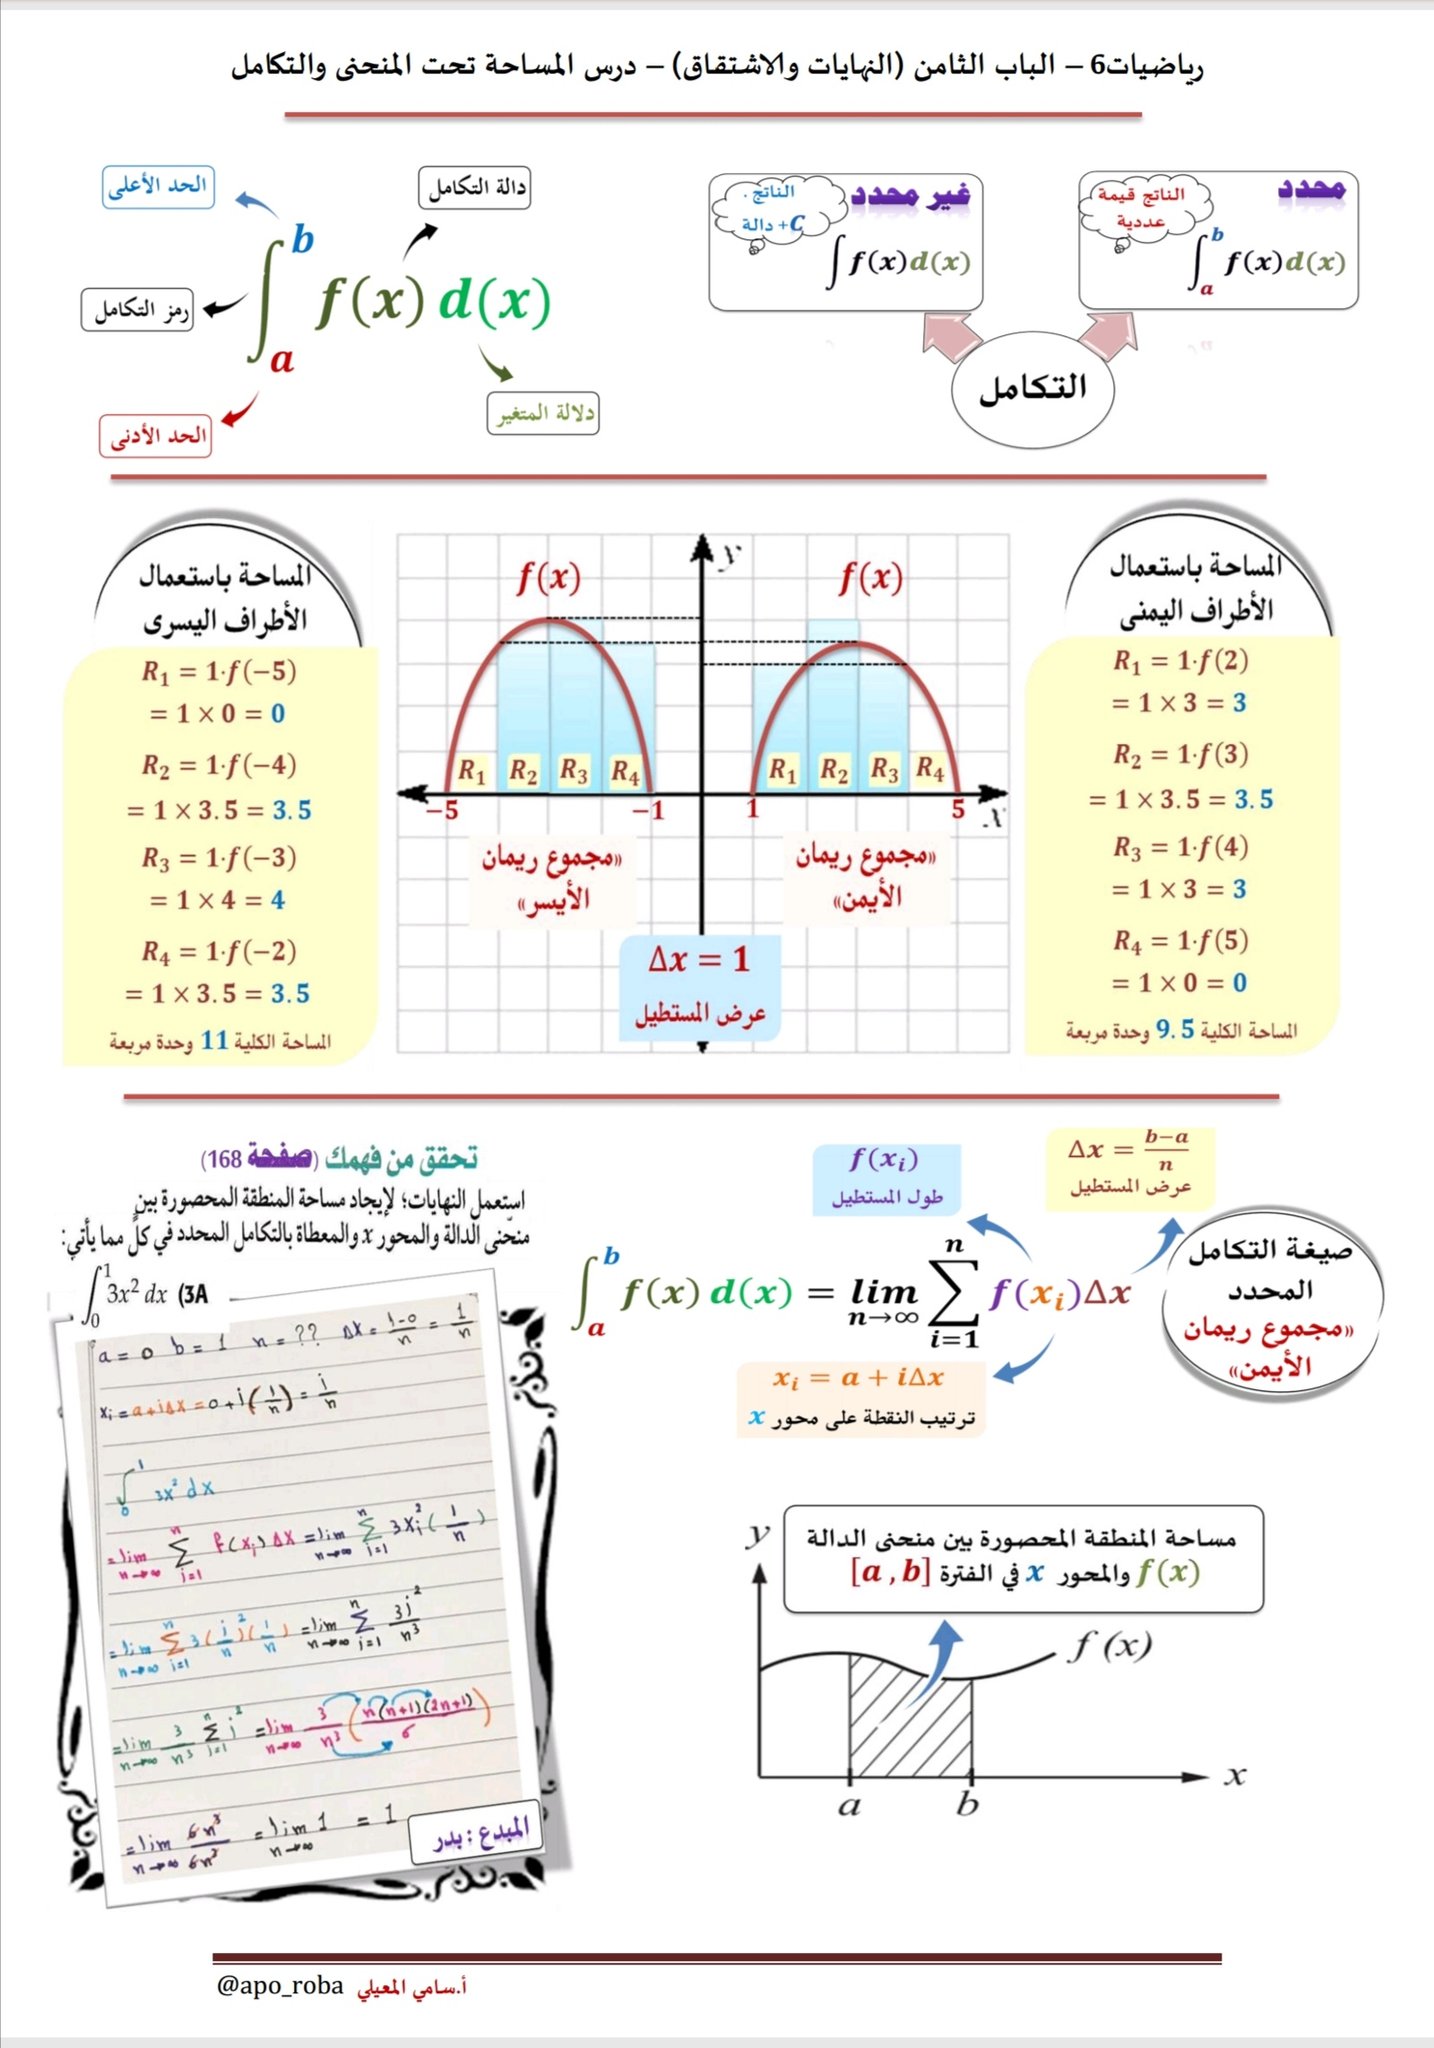 رياضيات6 – الباب الثامن (النهايات والاشتقاق) – درس المساحة تحت المنحنى والتكامل
محدد
الناتج قيمة
عددية
∫_a^b f(x)d(x)
غير محدد
الناتج .
دالة +C
∫ f(x)d(x)
التكامل
دالة التكامل
الحد الأعلى
∫_a^b f(x) d(x)
رمز التكامل
دلالة المتغير
الحد الأدنى
المساحة باستعمال
الأطراف اليمنى
R₁ = 1·f(2)
= 1 × 3 = 3
R₂ = 1·f(3)
= 1 × 3.5 = 3.5
R₃ = 1·f(4)
= 1 × 3 = 3
R₄ = 1·f(5)
= 1 × 0 = 0
المساحة الكلية 9.5 وحدة مربعة
y
f(x)
f(x)
R₁ R₂ R₃ R₄
R₁ R₂ R₃ R₄
−5 −1 1 5 x
«مجموع ريمان
الأيمن»
«مجموع ريمان
الأيسر»
Δx = 1
عرض المستطيل
المساحة باستعمال
الأطراف اليسرى
R₁ = 1·f(−5)
= 1 × 0 = 0
R₂ = 1·f(−4)
= 1 × 3.5 = 3.5
R₃ = 1·f(−3)
= 1 × 4 = 4
R₄ = 1·f(−2)
= 1 × 3.5 = 3.5
المساحة الكلية 11 وحدة مربعة
Δx = (b−a)/n
عرض المستطيل
f(xᵢ)
طول المستطيل
صيغة التكامل
المحدد
«مجموع ريمان
الأيمن»
∫_a^b f(x) d(x) = lim_{n→∞} ∑_{i=1}^n f(xᵢ)Δx
xᵢ = a + iΔx
ترتيب النقطة على محور x
مساحة المنطقة المحصورة بين منحنى الدالة
f(x) والمحور x في الفترة [a , b]
y
f (x)
x
a b
تحقق من فهمك (صفحة 168)
استعمل النهايات؛ لإيجاد مساحة المنطقة المحصورة بين
منحنى الدالة والمحور x والمعطاة بالتكامل المحدد في كلٍّ مما يأتي:
∫_0^1 3x² dx (3A
a = 0 b = 1 n = ?? Δx = (1-0)/n = 1/n
xᵢ = a+iΔx = 0+i(1/n) = i/n
∫_0^1 3x² dx
= lim_{n→∞} ∑_{i=1}^n f(xᵢ) Δx = lim_{n→∞} ∑_{i=1}^n 3xᵢ²(1/n)
= lim_{n→∞} ∑_{i=1}^n 3(i/n)²(1/n) = lim_{n→∞} ∑_{i=1}^n 3i²/n³
= lim_{n→∞} 3/n³ ∑_{i=1}^n i² = lim_{n→∞} 3/n³ (n(n+1)(2n+1)/6)
= lim_{n→∞} 6n³/6n³ = lim_{n→∞} 1 = 1
المبدع : بدر
أ.سامي المعيلي @apo_roba